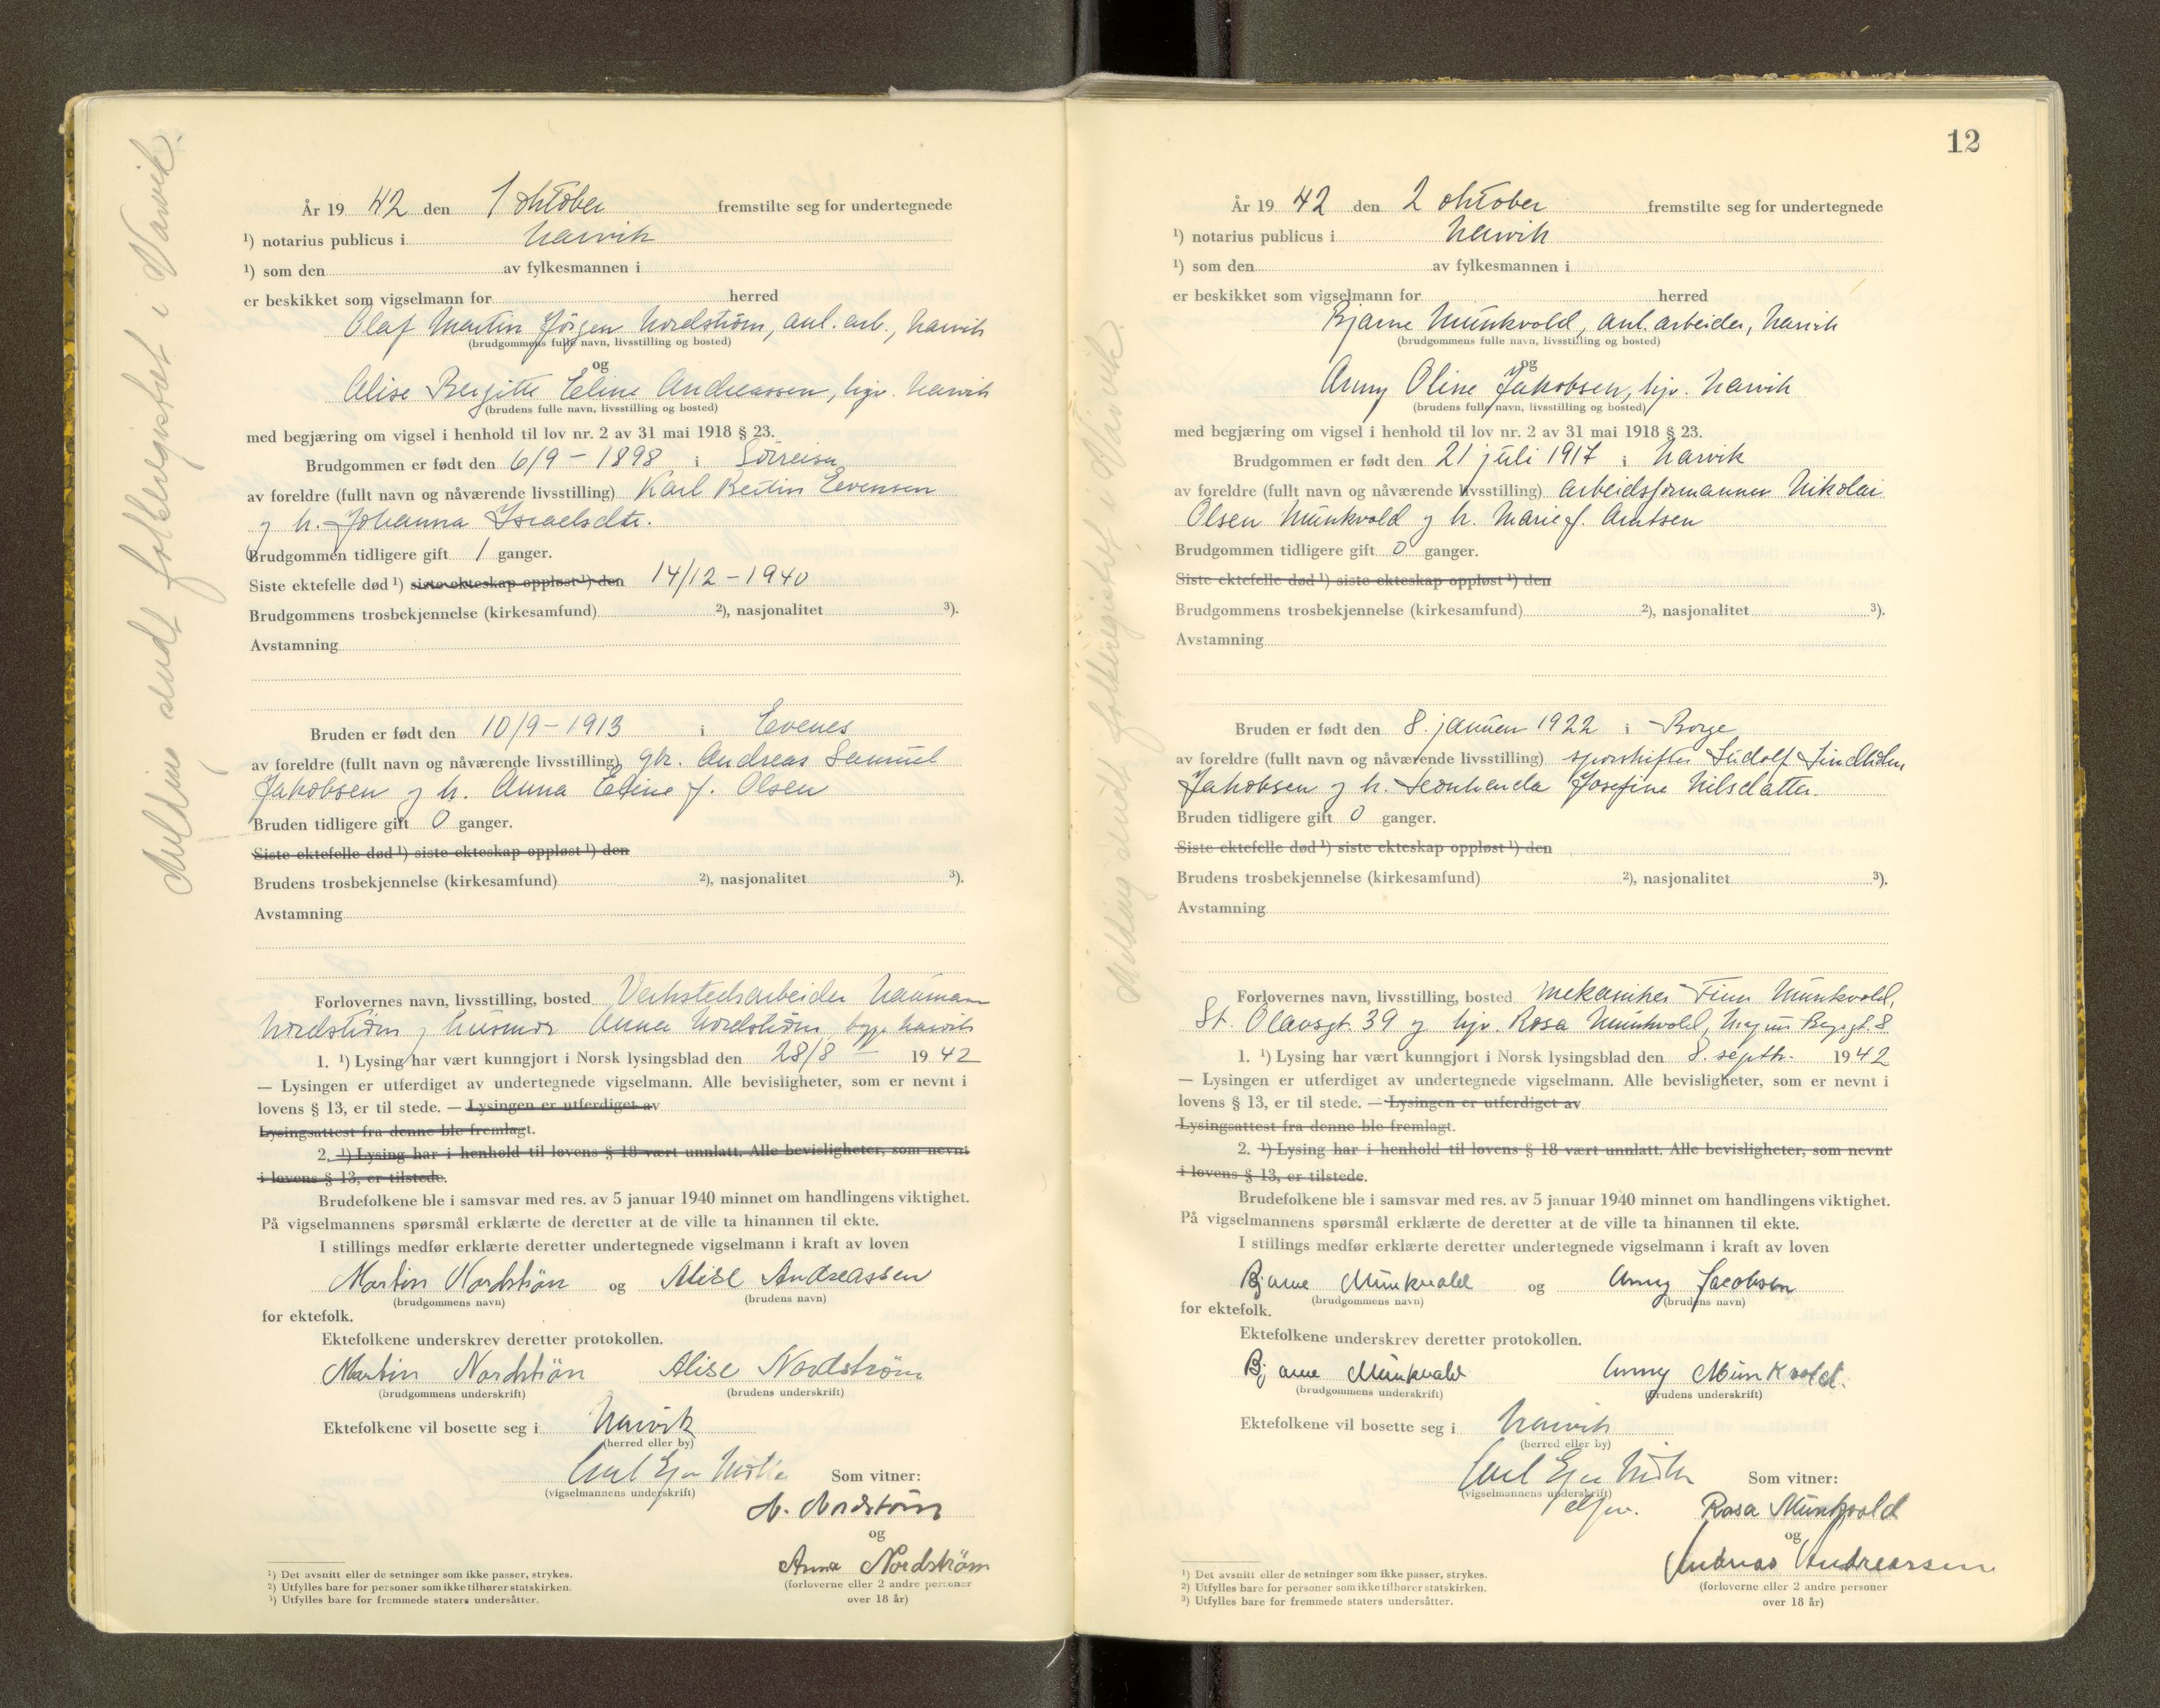 Melding sendt folkeregistret i Narvik.
År 19 42 den 1 oktober fremstilte seg for undertegnede
¹) notarius publicus i Narvik
¹) som den av fylkesmannen i
er beskikket som vigselmann for herred
Olaf Martin Jörgen Nordström, anl. arb., Narvik
(brudgommens fulle navn, livsstilling og bosted)
og
Alise Bergitte Eline Andreassen, hjv. Narvik
(brudens fulle navn, livsstilling og bosted)
med begjæring om vigsel i henhold til lov nr. 2 av 31 mai 1918 § 23.
Brudgommen er født den 6/9 - 1898 i Sörreisa
av foreldre (fullt navn og nåværende livsstilling) Karl Evensen
og h. Johanna Israelsdtr.
Brudgommen tidligere gift 1 ganger.
Siste ektefelle død ¹) siste ekteskap oppløst ¹) den 14/12 - 1940
Brudgommens trosbekjennelse (kirkesamfund) ²), nasjonalitet ³).
Avstamning
Bruden er født den 10/9 - 1913 i Evenes
av foreldre (fullt navn og nåværende livsstilling) gbr. Andreas Samuel
Jakobsen og h. Anna Eline f. Olsen
Bruden tidligere gift 0 ganger.
Siste ektefelle død ¹) siste ekteskap oppløst ¹) den
Brudens trosbekjennelse (kirkesamfund) ²), nasjonalitet ³).
Avstamning
Forlovernes navn, livsstilling, bosted Verkstedsarbeider Nauman
Nordström og husmor Anna Nordström, begge Narvik
1. ¹) Lysing har vært kunngjort i Norsk lysingsblad den 28/8 - 19 42
— Lysingen er utferdiget av undertegnede vigselmann. Alle bevisligheter, som er nevnt i
lovens § 13, er til stede. — Lysingen er utferdiget av
Lysingsattest fra denne ble fremlagt.
2. ¹) Lysing har i henhold til lovens § 18 vært unnlatt. Alle bevisligheter, som nevnt
i lovens § 13, er tilstede.
Brudefolkene ble i samsvar med res. av 5 januar 1940 minnet om handlingens viktighet.
På vigselmannens spørsmål erklærte de deretter at de ville ta hinannen til ekte.
I stillings medfør erklærte deretter undertegnede vigselmann i kraft av loven
Martin Nordström og Alise Andreassen
(brudgommens navn) (brudens navn)
for ektefolk.
Ektefolkene underskrev deretter protokollen.
Martin Nordström Alise Nordström
(brudgommens underskrift) (brudens underskrift)
Ektefolkene vil bosette seg i Narvik
(herred eller by)
Carl Som vitner:
(vigselmannens underskrift)
N. Nordström
og
Anna Nordström
(forloverne eller 2 andre personer
over 18 år)
¹) Det avsnitt eller de setninger som ikke passer, strykes.
²) Utfylles bare for personer som ikke tilhører statskirken.
³) Utfylles bare for fremmede staters undersåtter.
12
Melding sendt folkeregistret i Narvik.
År 19 42 den 2 oktober fremstilte seg for undertegnede
¹) notarius publicus i Narvik
¹) som den av fylkesmannen i
er beskikket som vigselmann for herred
Bjarne Munkvold, anl. arbeider, Narvik
(brudgommens fulle navn, livsstilling og bosted)
og
Anny Oline Jakobsen, hjv. Narvik
(brudens fulle navn, livsstilling og bosted)
med begjæring om vigsel i henhold til lov nr. 2 av 31 mai 1918 § 23.
Brudgommen er født den 21 juli 1917 i Narvik
av foreldre (fullt navn og nåværende livsstilling) arbeidsformannen Nikolai
Olsen Munkvold og h. Marie f. Arntsen
Brudgommen tidligere gift 0 ganger.
Siste ektefelle død ¹) siste ekteskap oppløst ¹) den
Brudgommens trosbekjennelse (kirkesamfund) ²), nasjonalitet ³).
Avstamning
Bruden er født den 8. januar 1922 i Borge
av foreldre (fullt navn og nåværende livsstilling) sporskifter Ludolf
Jakobsen og h. Leonharda Josefine Nilsdatter.
Bruden tidligere gift 0 ganger.
Siste ektefelle død ¹) siste ekteskap oppløst ¹) den
Brudens trosbekjennelse (kirkesamfund) ²), nasjonalitet ³).
Avstamning
Forlovernes navn, livsstilling, bosted mekaniker Finn Munkvold,
St. Olavsgt. 39 og hjv. Rosa Munkvold, 8
1. ¹) Lysing har vært kunngjort i Norsk lysingsblad den 8. septbr. 19 42
— Lysingen er utferdiget av undertegnede vigselmann. Alle bevisligheter, som er nevnt i
lovens § 13, er til stede. — Lysingen er utferdiget av
Lysingsattest fra denne ble fremlagt.
2. ¹) Lysing har i henhold til lovens § 18 vært unnlatt. Alle bevisligheter, som nevnt
i lovens § 13, er tilstede.
Brudefolkene ble i samsvar med res. av 5 januar 1940 minnet om handlingens viktighet.
På vigselmannens spørsmål erklærte de deretter at de ville ta hinannen til ekte.
I stillings medfør erklærte deretter undertegnede vigselmann i kraft av loven
Bjarne Munkvold og Anny Jacobsen
(brudgommens navn) (brudens navn)
for ektefolk.
Ektefolkene underskrev deretter protokollen.
Bjarne Munkvold Anny Munkvold.
(brudgommens underskrift) (brudens underskrift)
Ektefolkene vil bosette seg i Narvik
(herred eller by)
Carl Som vitner:
(vigselmannens underskrift)
Rosa Munkvold
og
Andreas Andreassen
(forloverne eller 2 andre personer
over 18 år)
¹) Det avsnitt eller de setninger som ikke passer, strykes.
²) Utfylles bare for personer som ikke tilhører statskirken.
³) Utfylles bare for fremmede staters undersåtter.